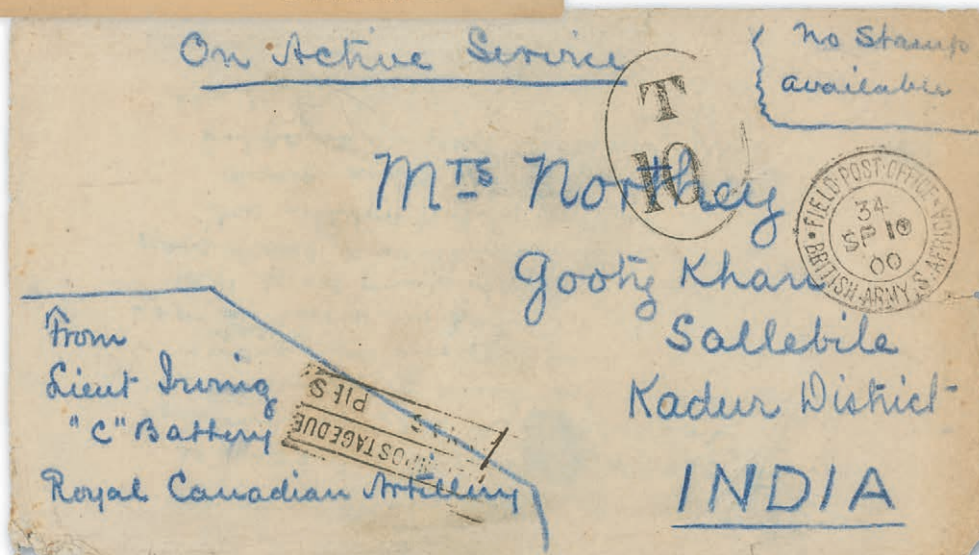 On Active Service
No Stamps
available
T
10
Mrs Northey
FIELD·POST·OFFICE
34
SP 10
00
BRITISH·ARMY·S. AFRICA
Gooty Khan
Sallebile
Kadur District
INDIA
From
Lieut Irving
"C" Battery
Royal Canadian Artillery
POSTAGE DUE
PIES